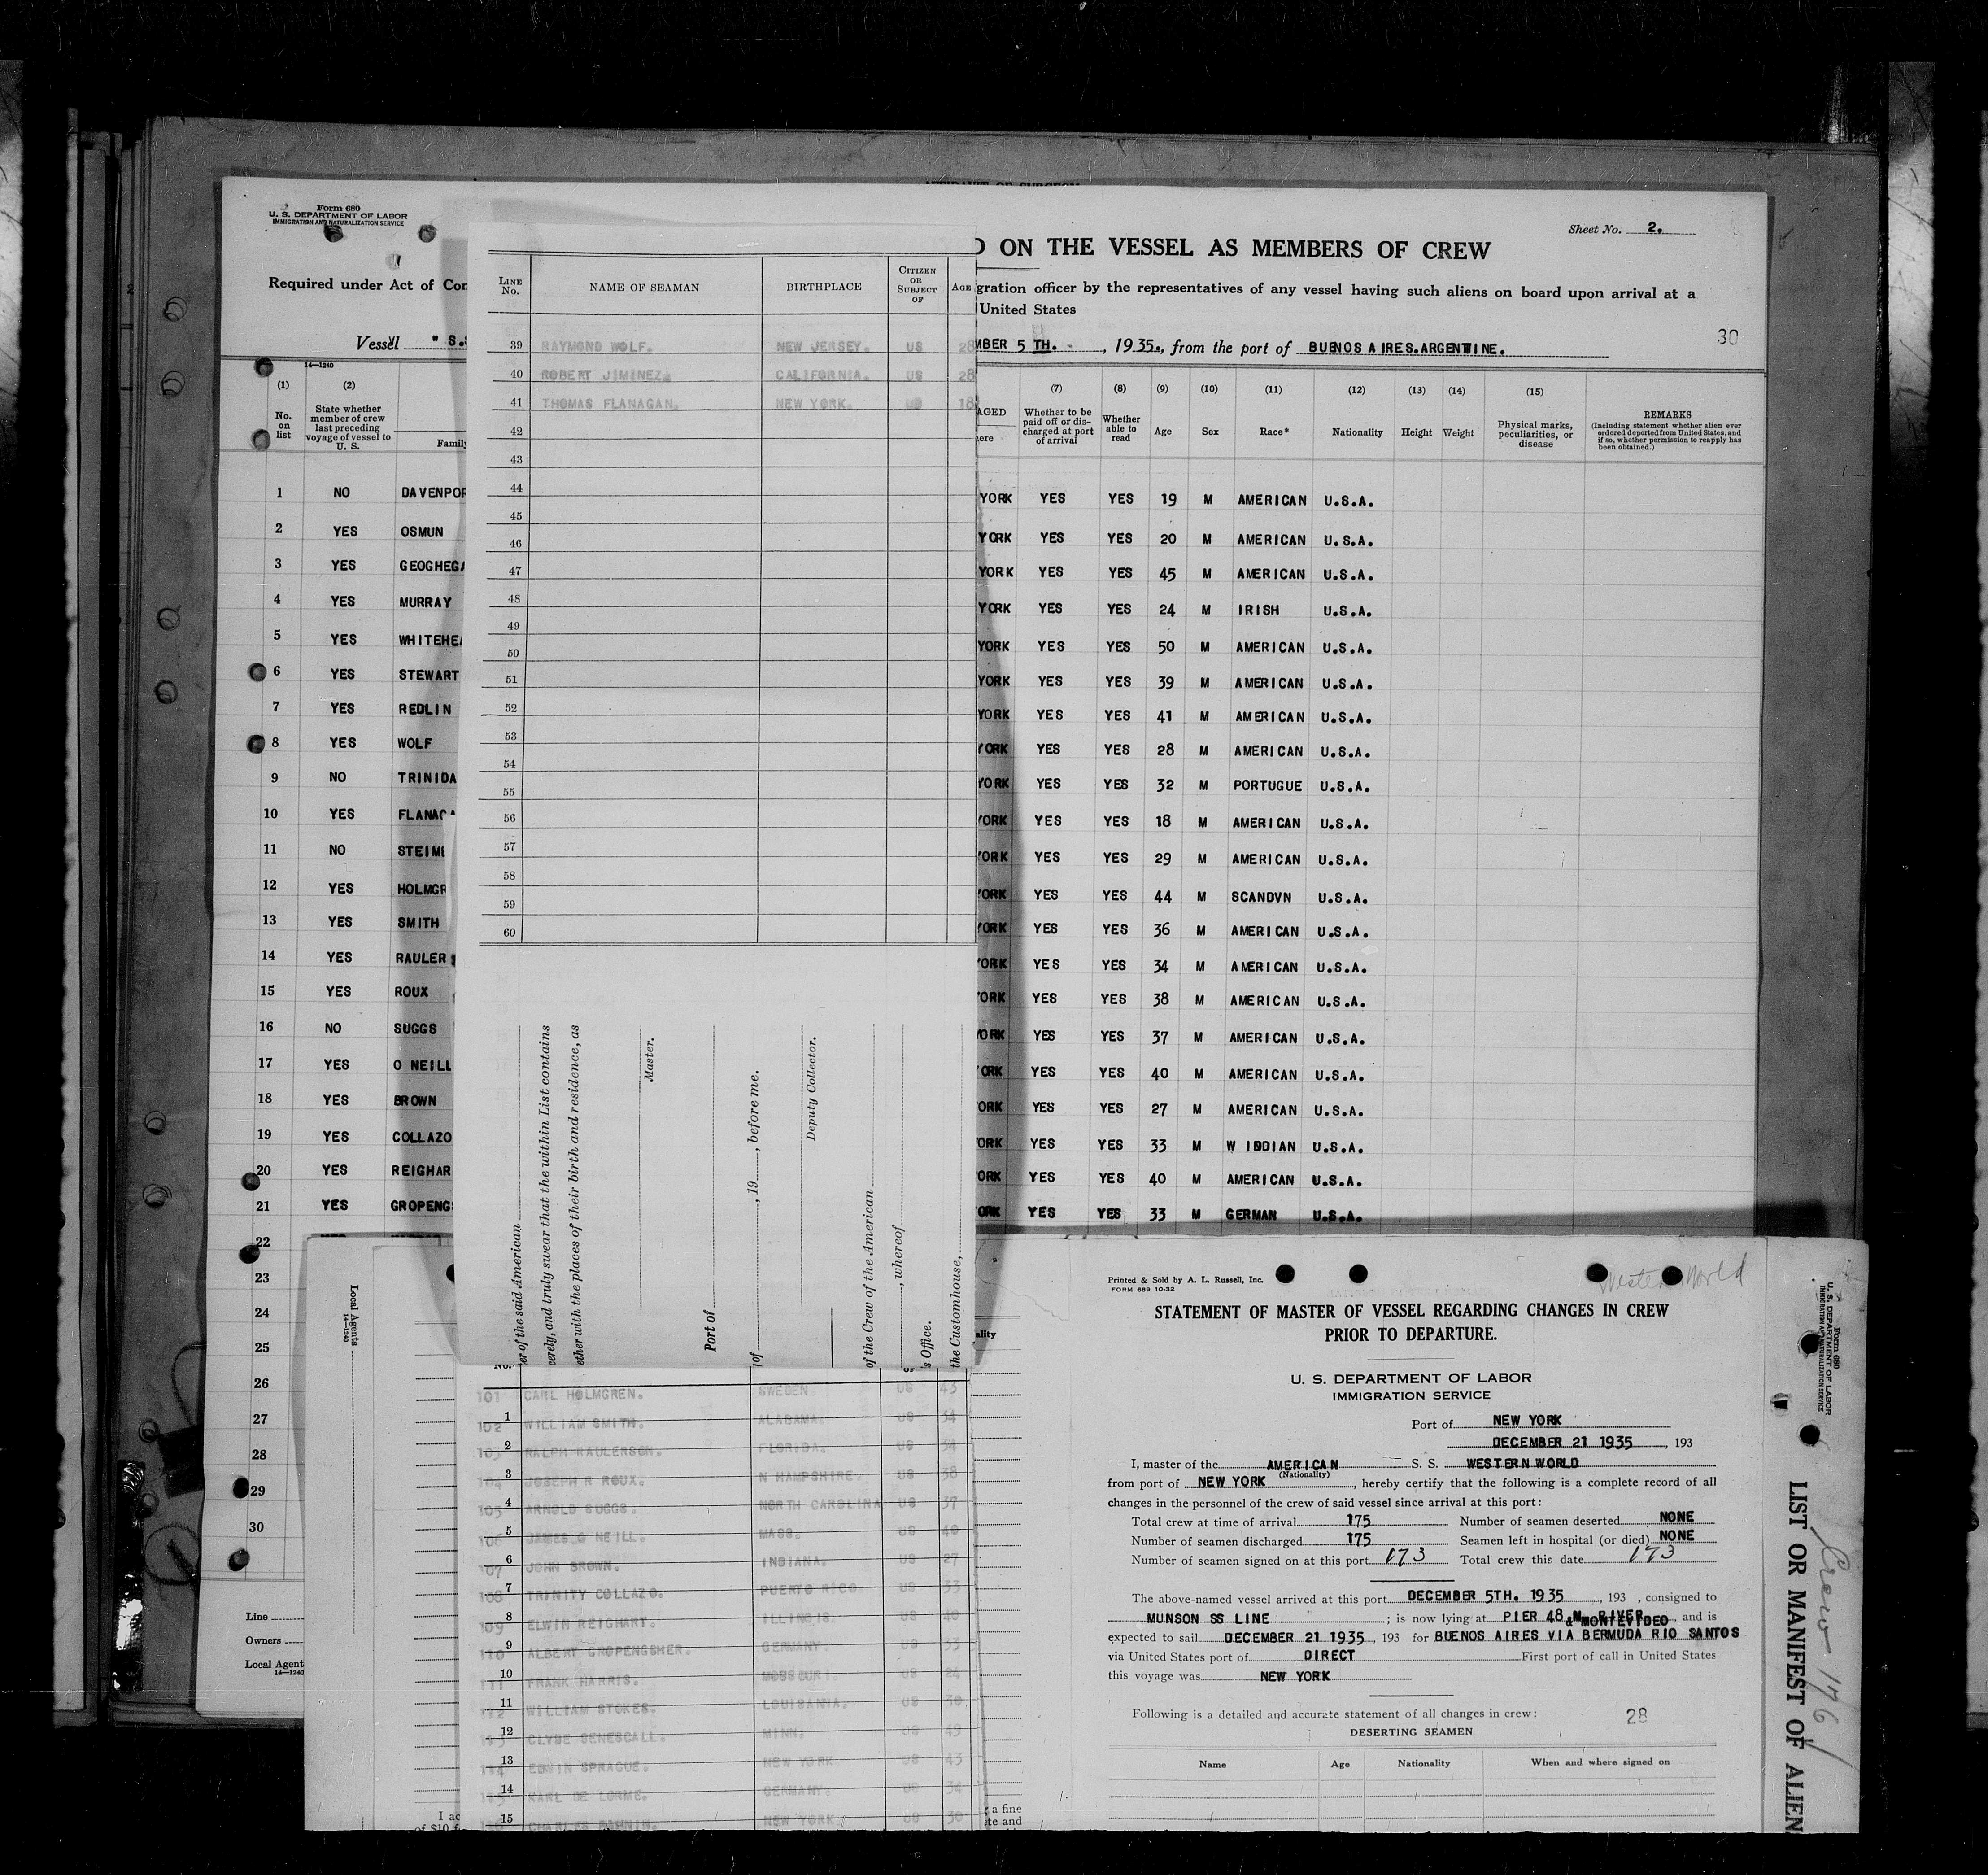 Form 680
U. S. DEPARTMENT OF LABOR
IMMIGRATION AND NATURALIZATION SERVICE
Required under Act of Con
Vessel " S.S
14—1240
(1) (2)
No. on list
State whether member of crew last preceding voyage of vessel to U. S.
Family
1 NO DAVENPOR
2 YES OSMUN
3 YES GEOGHEGA
4 YES MURRAY
5 YES WHITEHEA
6 YES STEWART
7 YES REDLIN
8 YES WOLF
9 NO TRINIDA
10 YES FLANAGA
11 NO STEIML
12 YES HOLMGR
13 YES SMITH
14 YES RAULERS
15 YES ROUX
16 NO SUGGS
17 YES O NEILL
18 YES BROWN
19 YES COLLAZO
20 YES REIGHAR
21 YES GROPENGS
22
23
24
25
26
27
28
29
30
Line
Owners
Local Agent
14—1240
LINE No. NAME OF SEAMAN BIRTHPLACE CITIZEN OR SUBJECT OF AGE
39 RAYMOND WOLF. NEW JERSEY. US 28
40 ROBERT JIMINEZ. CALIFORNIA. US 28
41 THOMAS FLANAGAN. NEW YORK. US 18
42
43
44
45
46
47
48
49
50
51
52
53
54
55
56
57
58
59
60
er of the said American
cerely, and truly swear that the within List contains
ether with the places of their birth and residence, as
Master.
Port of
of , 19 , before me.
Deputy Collector.
of the Crew of the American
, whereof
's Office.
the Customhouse,
Sheet No. 2.
D ON THE VESSEL AS MEMBERS OF CREW
gration officer by the representatives of any vessel having such aliens on board upon arrival at a
United States
MBER 5 TH. , 1935., from the port of BUENOS AIRES.ARGENTINE.
30
(7) (8) (9) (10) (11) (12) (13) (14) (15)
AGED
here
Whether to be paid off or discharged at port of arrival
Whether able to read
Age
Sex
Race*
Nationality
Height
Weight
Physical marks, peculiarities, or disease
REMARKS
(Including statement whether alien ever ordered deported from United States, and if so, whether permission to reapply has been obtained.)
YORK YES YES 19 M AMERICAN U.S.A.
YORK YES YES 20 M AMERICAN U.S.A.
YORK YES YES 45 M AMERICAN U.S.A.
YORK YES YES 24 M IRISH U.S.A.
YORK YES YES 50 M AMERICAN U.S.A.
YORK YES YES 39 M AMERICAN U.S.A.
YORK YES YES 41 M AMERICAN U.S.A.
YORK YES YES 28 M AMERICAN U.S.A.
YORK YES YES 32 M PORTUGUE U.S.A.
YORK YES YES 18 M AMERICAN U.S.A.
YORK YES YES 29 M AMERICAN U.S.A.
YORK YES YES 44 M SCANDVN U.S.A.
YORK YES YES 36 M AMERICAN U.S.A.
YORK YES YES 34 M AMERICAN U.S.A.
YORK YES YES 38 M AMERICAN U.S.A.
YORK YES YES 37 M AMERICAN U.S.A.
ORK YES YES 40 M AMERICAN U.S.A.
ORK YES YES 27 M AMERICAN U.S.A.
ORK YES YES 33 M W INDIAN U.S.A.
ORK YES YES 40 M AMERICAN U.S.A.
ORK YES YES 33 M GERMAN U.S.A.
Local Agents
14—1240
ality
101 CARL HOLMGREN. SWEDEN. US 43
1 102 WILLIAM SMITH. ALABAMA. US 34
2 103 RALPH RAULERSON. FLORIDA. US 34
3 104 JOSEPH R ROUX. N HAMPSHIRE. US 38
4 105 ARNOLD SUGGS. NORTH CAROLINA US 37
5 106 JAMES O NEILL. MASS. US 40
6 107 JOHN BROWN. INDIANA. US 27
7 108 TRINITY COLLAZO. PUERTO RICO. US 33
8 109 ELWIN REIGHART. ILLINOIS. US 40
9 110 ALBERT GROPENGSHER. GERMANY. US 33
10 111 FRANK HARRIS. MUSSOURI. US 24
11 112 WILLIAM STOKES. LOUISANNA. US 30
12 113 CLYDE SENESCALL. MINN. US 49
13 114 EDWIN SPRAGUE. NEW YORK US 43
14 115 KARL DE LORME. GERMANY. US 34
15 CHARLES NEW YORK. US 30
I ac
of $10 f
g a fine
te and
Western World
Printed & Sold by A. L. Russell, Inc.
FORM 689 10-32
STATEMENT OF MASTER OF VESSEL REGARDING CHANGES IN CREW
PRIOR TO DEPARTURE.
U. S. DEPARTMENT OF LABOR
IMMIGRATION SERVICE
Port of NEW YORK
DECEMBER 21 1935 , 193
I, master of the AMERICAN S. S. WESTERN WORLD
(Nationality)
from port of NEW YORK , hereby certify that the following is a complete record of all
changes in the personnel of the crew of said vessel since arrival at this port:
Total crew at time of arrival 175 Number of seamen deserted NONE
Number of seamen discharged 175 Seamen left in hospital (or died) NONE
Number of seamen signed on at this port 173 Total crew this date 173
The above-named vessel arrived at this port DECEMBER 5TH. 1935 , 193 , consigned to
MUNSON SS LINE ; is now lying at PIER 48 N RIVER , and is
& MONTEVIDEO
expected to sail DECEMBER 21 1935 , 193 for BUENOS AIRES VIA BERMUDA RIO SANTOS
via United States port of DIRECT First port of call in United States
this voyage was NEW YORK
Following is a detailed and accurate statement of all changes in crew:
28
DESERTING SEAMEN
Name Age Nationality When and where signed on
Form 680
U. S. DEPARTMENT OF LABOR
IMMIGRATION AND NATURALIZATION SERVICE
LIST OR MANIFEST OF ALIEN
Crew 176